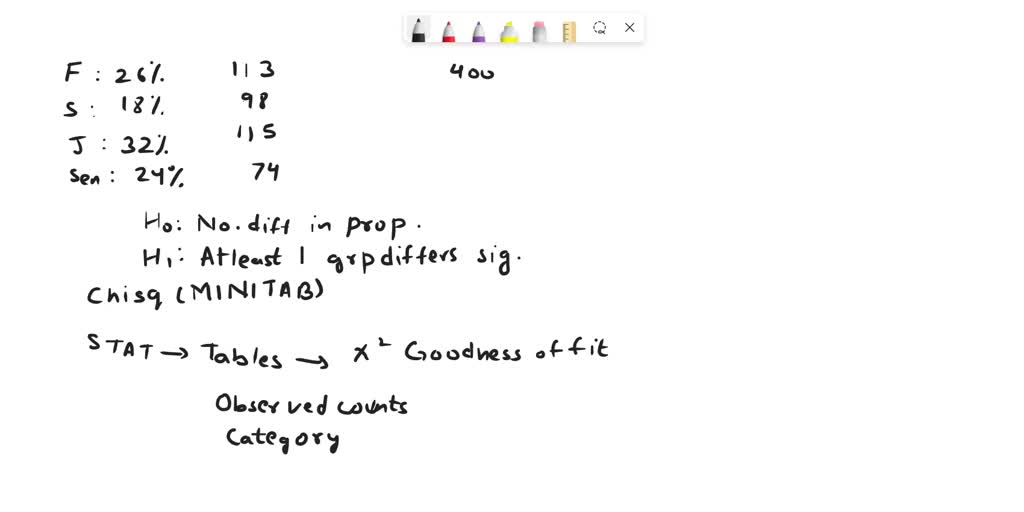 F : 26% 113 400
S : 18% 98
J : 32% 115
Sen : 24% 74
H0: No. diff in prop.
H1: Atleast 1 grp differs sig.
Chisq (MINITAB)
STAT → Tables → x² Goodness of fit
Observed counts
Category